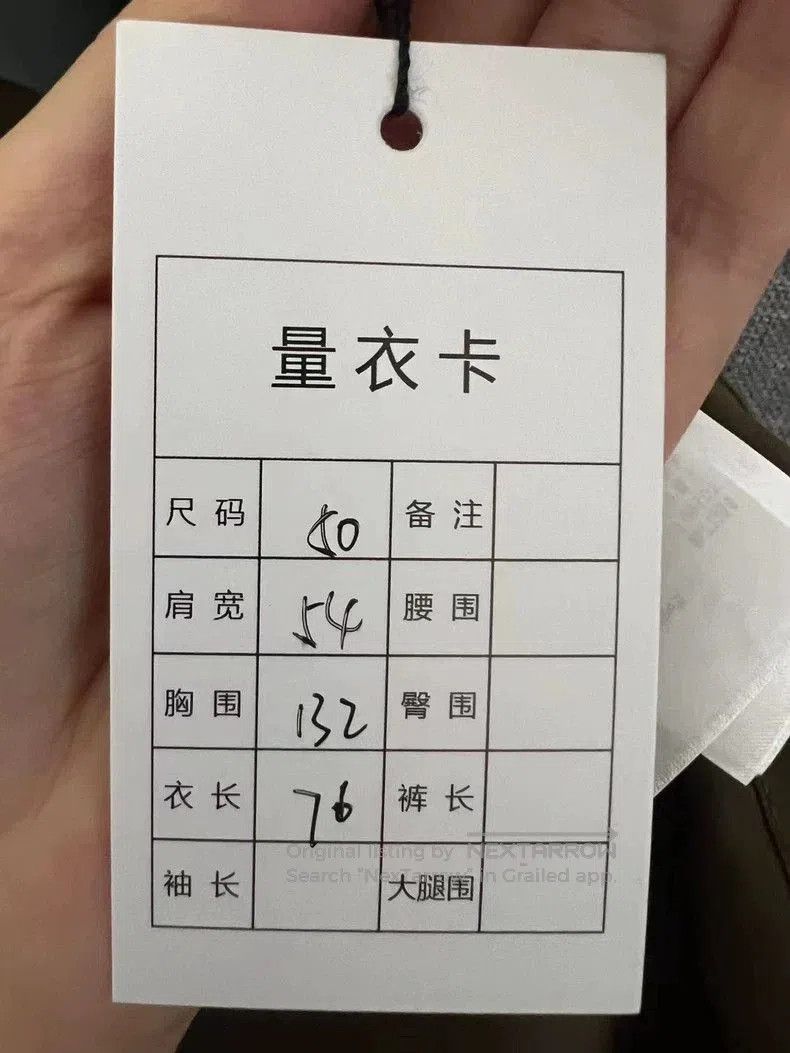 量衣卡
尺码 50 备注
肩宽 54 腰围
胸围 132 臀围
衣长 76 裤长
Original listing by NEXTARROW
Search "NexTarrow" in Grailed app.
袖长 大腿围